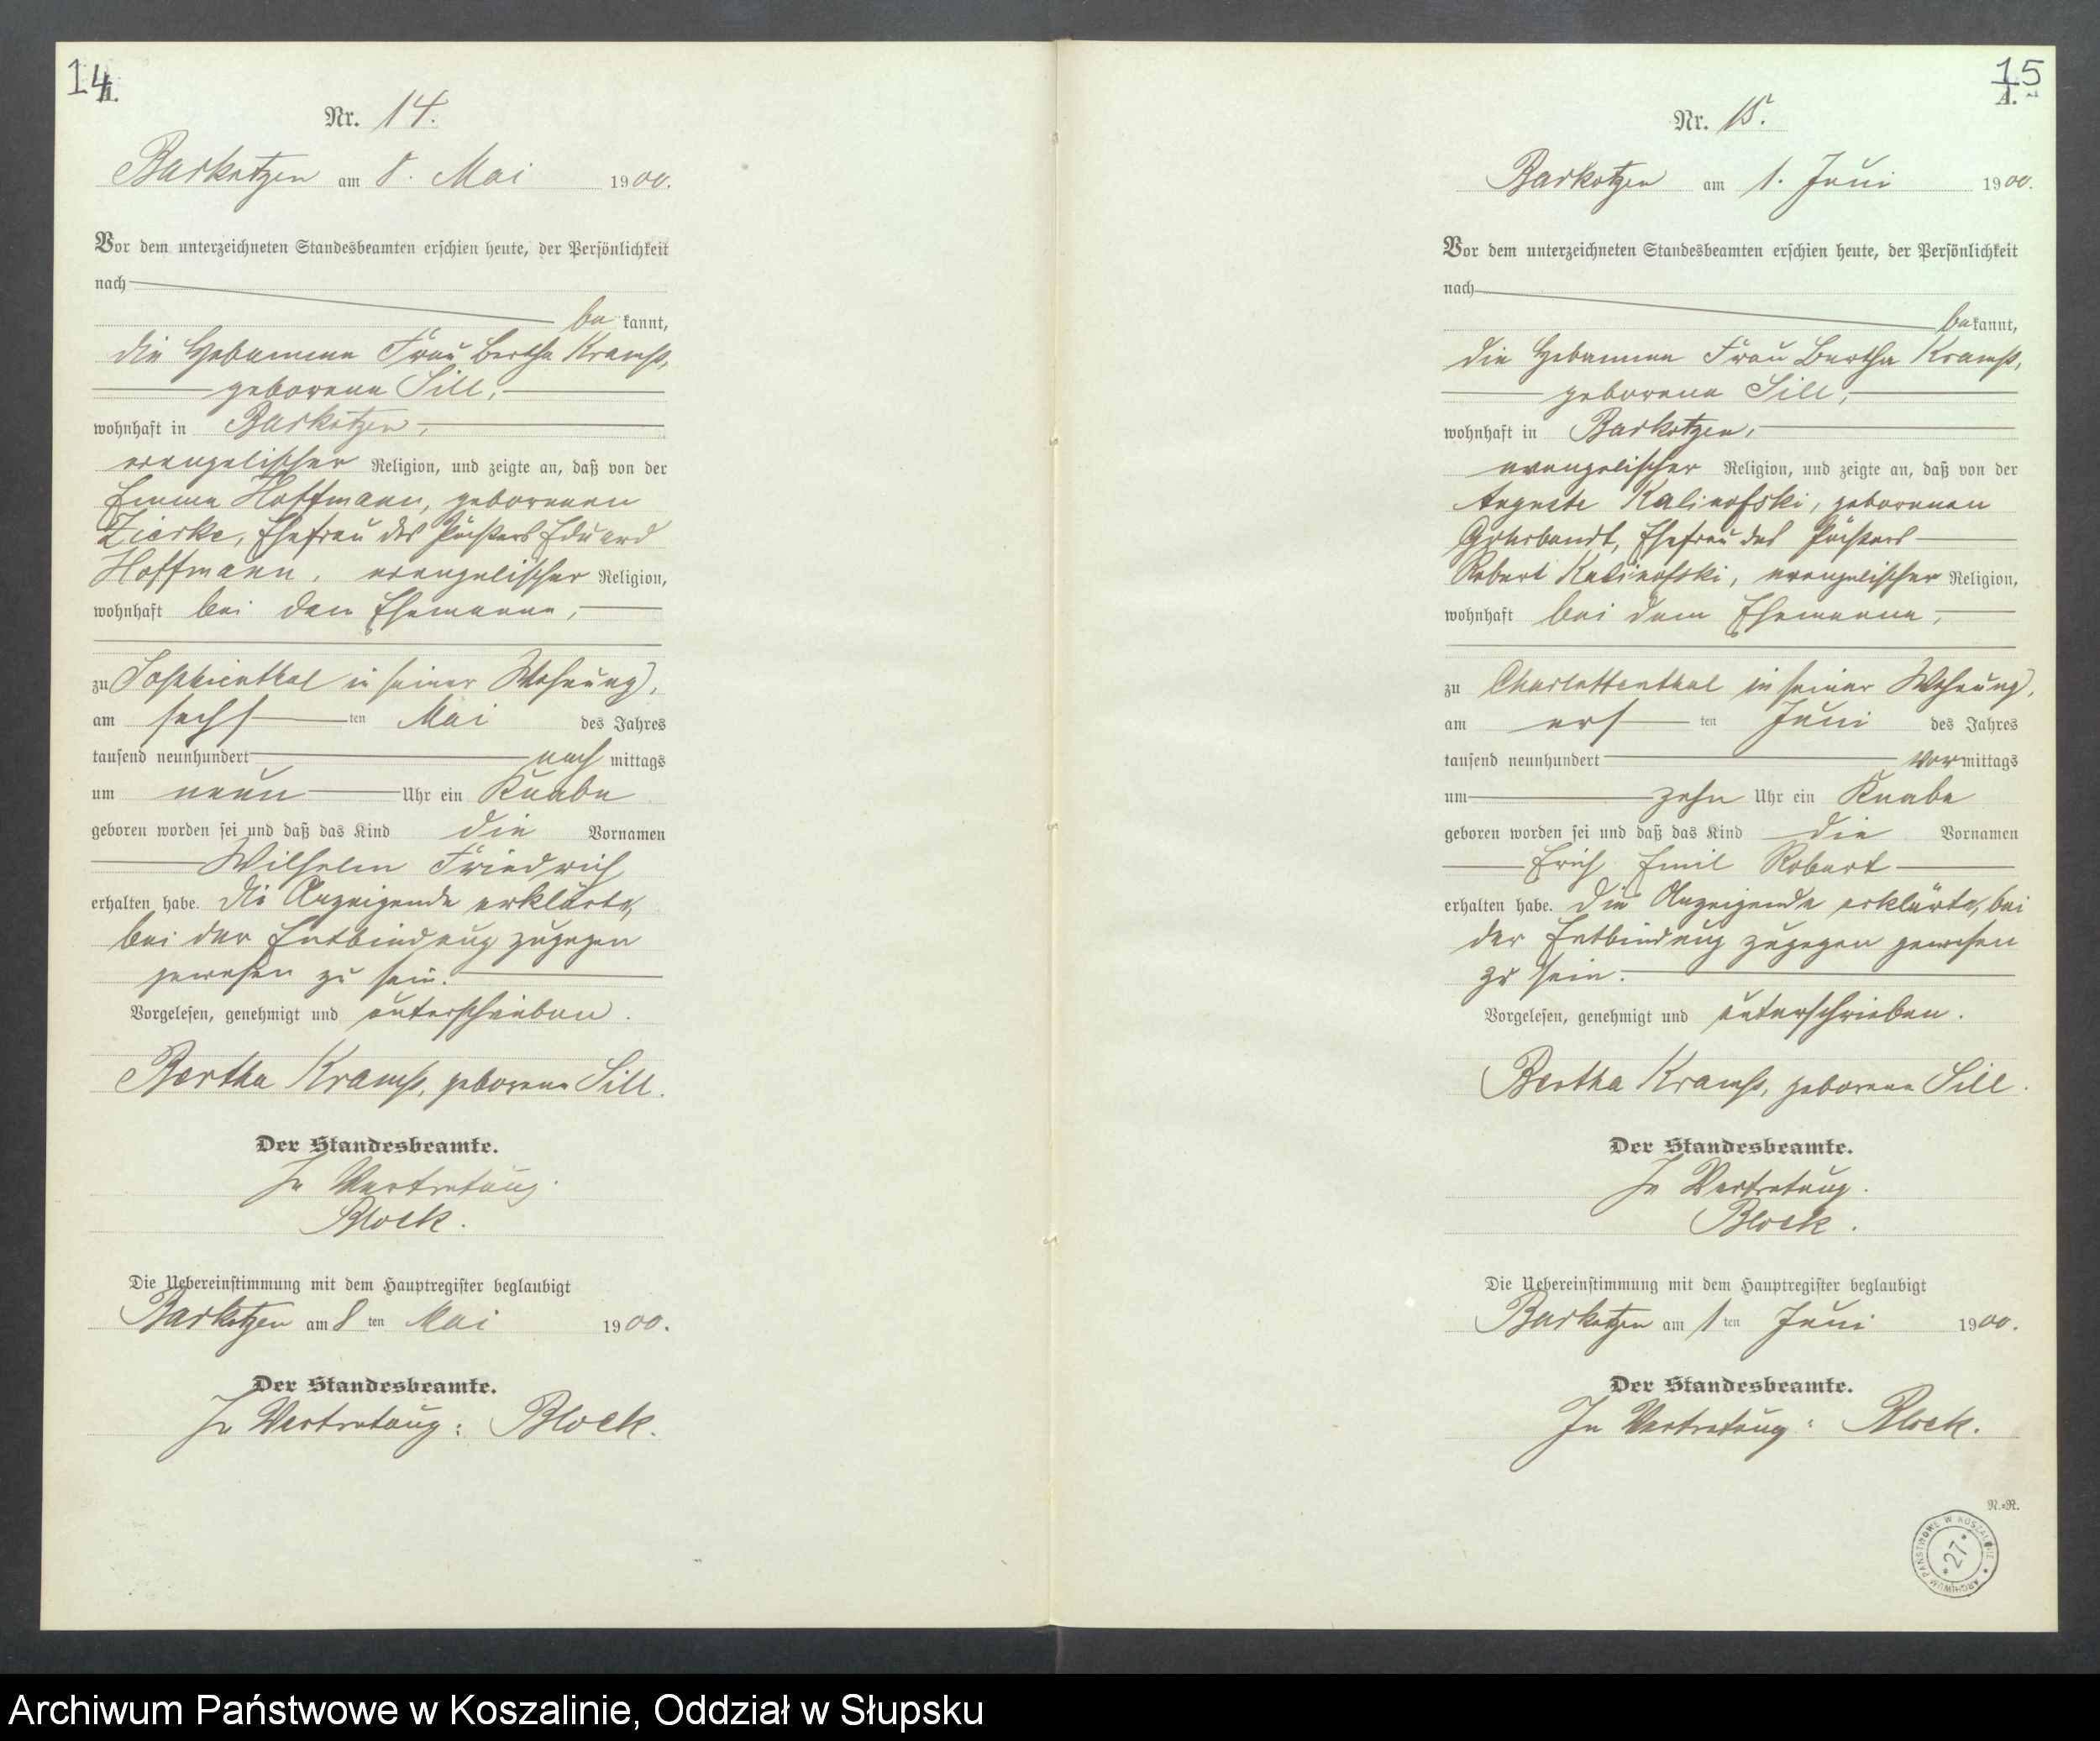 14
A.
Nr. 14.
Barkotzen am 8. Mai 1900.
Vor dem unterzeichneten Standesbeamten erschien heute, der Persönlichkeit
nach
be kannt,
die Hebamme Frau Bertha Kramp,
geborene Sill,
wohnhaft in Barkotzen,
evangelischer Religion, und zeigte an, daß von der
Emma Hoffmann, geborenen
Zierke, Ehefrau des Pächters Eduard
Hoffmann, evangelischer Religion,
wohnhaft bei dem Ehemanne,
zu Sophienthal in seiner Wohnung,
am sechs ten Mai des Jahres
tausend neunhundert nach mittags
um neun Uhr ein Knabe
geboren worden sei und daß das Kind die Vornamen
Wilhelm Friedrich
erhalten habe. Die Anzeigende erklärte,
bei der Entbindung zugegen
gewesen zu sein.
Vorgelesen, genehmigt und unterschrieben.
Bertha Kramp, geborene Sill.
Der Standesbeamte.
In Vertretung.
Block.
Die Uebereinstimmung mit dem Hauptregister beglaubigt
Barkotzen am 8 ten Mai 1900.
Der Standesbeamte.
In Vertretung: Block.
15
A.
Nr. 15.
Barkotzen am 1. Juni 1900.
Vor dem unterzeichneten Standesbeamten erschien heute, der Persönlichkeit
nach
bekannt,
die Hebamme Frau Bertha Kramp,
geborene Sill,
wohnhaft in Barkotzen,
evangelischer Religion, und zeigte an, daß von der
Auguste Kalinofski, geborenen
Gohrbandt, Ehefrau des Pächters
Robert Kalinofski, evangelischer Religion,
wohnhaft bei dem Ehemanne,
zu Charlottenthal in seiner Wohnung,
am ers ten Juni des Jahres
tausend neunhundert Vormittags
um zehn Uhr ein Knabe
geboren worden sei und daß das Kind die Vornamen
Erich Emil Robert
erhalten habe. Die Anzeigende erklärte, bei
der Entbindung zugegen gewesen
zu sein.
Vorgelesen, genehmigt und unterschrieben.
Bertha Kramp, geborene Sill.
Der Standesbeamte.
In Vertretung.
Block.
Die Uebereinstimmung mit dem Hauptregister beglaubigt
Barkotzen am 1 ten Juni 1900.
Der Standesbeamte.
In Vertretung: Block.
N.=R.
ARCHIWUM PAŃSTWOWE W KOSZALINIE
* 27 *
Archiwum Państwowe w Koszalinie, Oddział w Słupsku